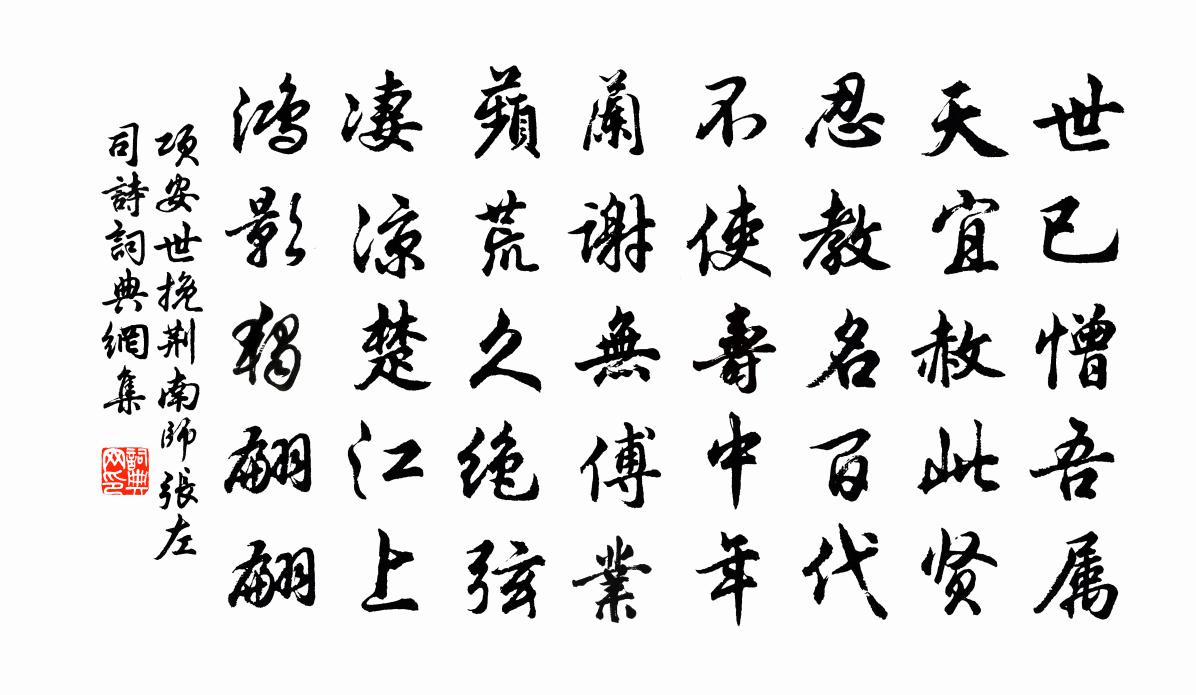 世已憎吾属
天宜赦此贤
忍教名百代
不使壽中年
蘭谢無傅業
蘋荒久绝弦
凄凉楚江上
鸿影独翩翩
项安世挽荆南师張左
司詩詞典網集
詞典网印